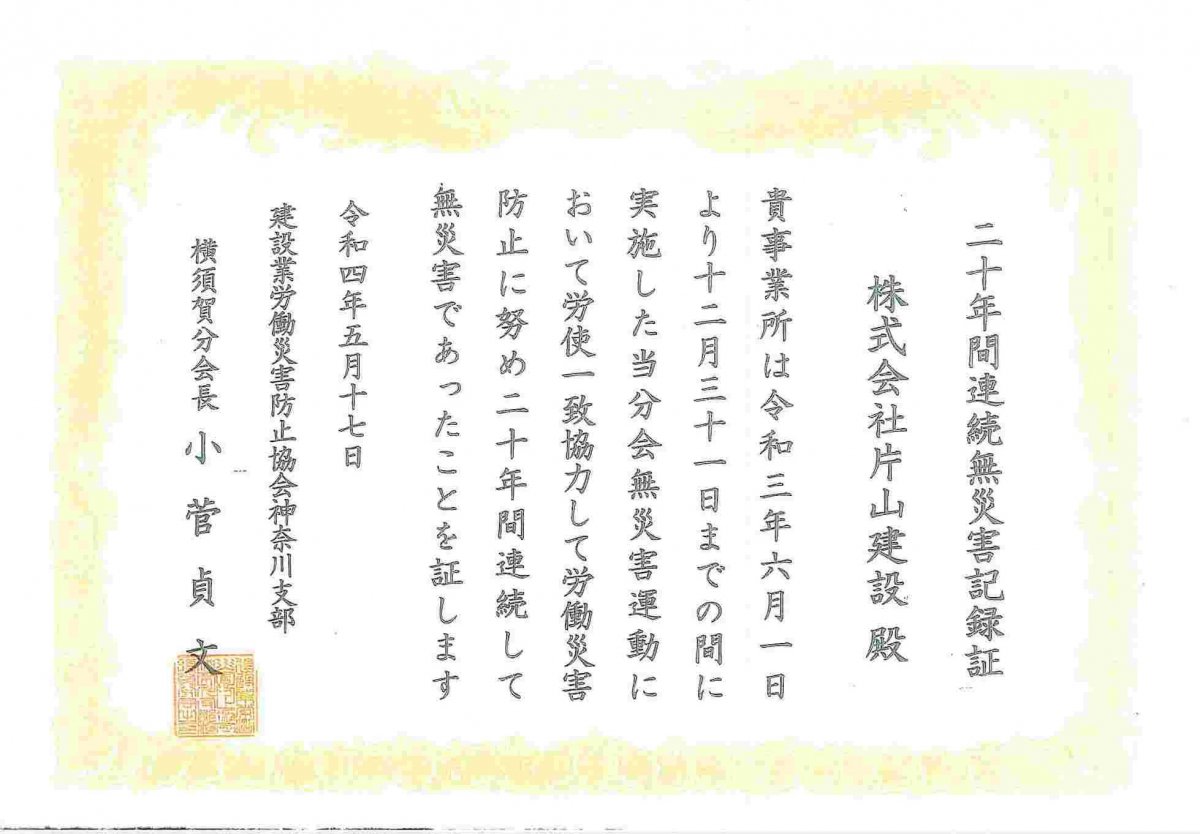 二十年間連続無災害記録証
株式会社片山建設 殿
貴事業所は令和三年六月一日
より十二月三十一日までの間に
実施した当分会無災害運動に
おいて労使一致協力して労働災害
防止に努め二十年間連続して
無災害であったことを証します
令和四年五月十七日
建設業労働災害防止協会神奈川支部
横須賀分会長 小菅貞文